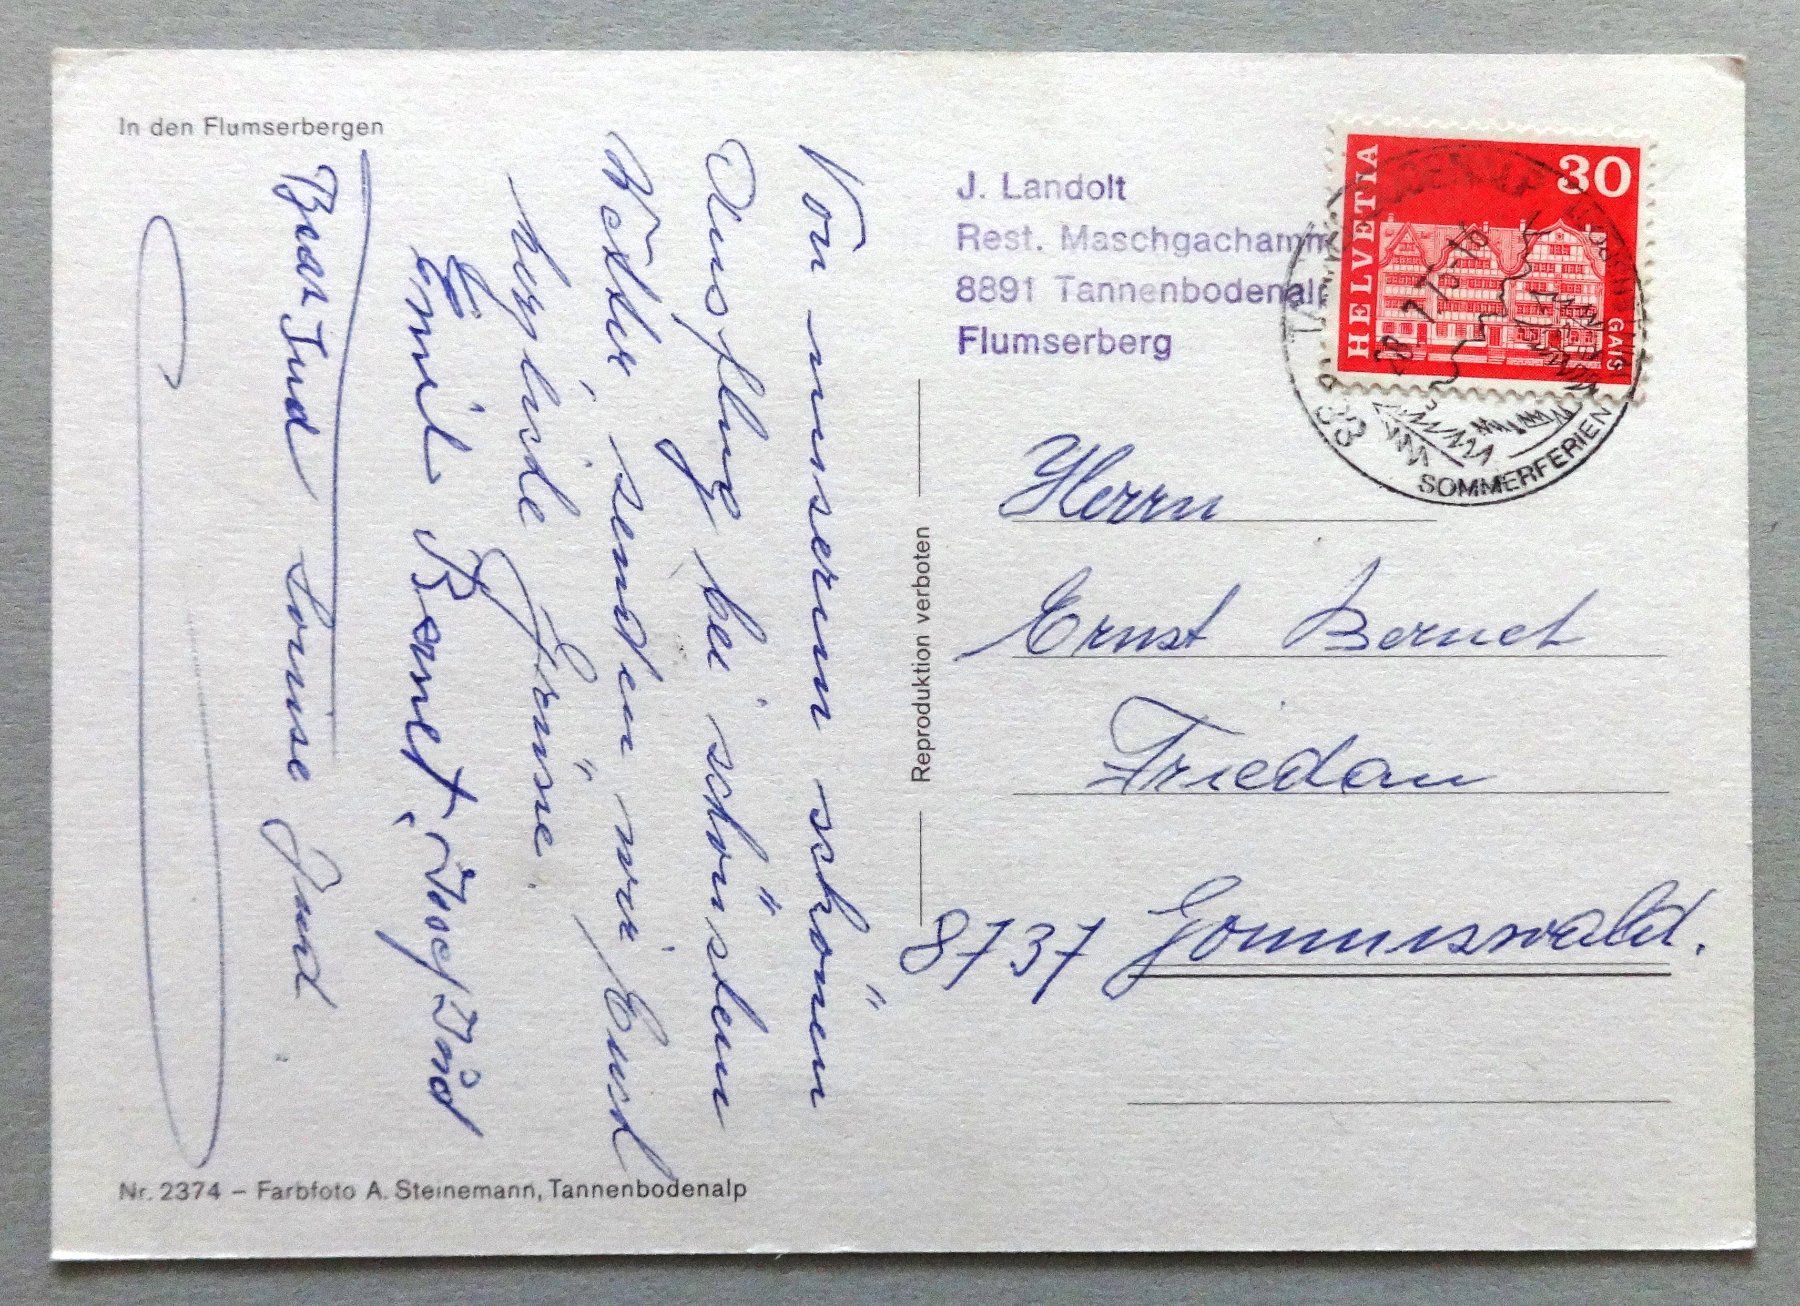 In den Flumserbergen
Von unserem schönen
Ausflug bei schönstem
Wetter, senden wir Euch
herzliche Grüsse.
Emil Bernet, Josef Jud
Beat Jud Louise Jud
Nr. 2374 – Farbfoto A. Steinemann, Tannenbodenalp
Reproduktion verboten
J. Landolt
Rest. Maschgachamm
8891 Tannenbodenalp
Flumserberg
HELVETIA
30
GAIS
SOMMERFERIEN
Herrn
Ernst Bernet
Friedau
8737 Gommiswald.